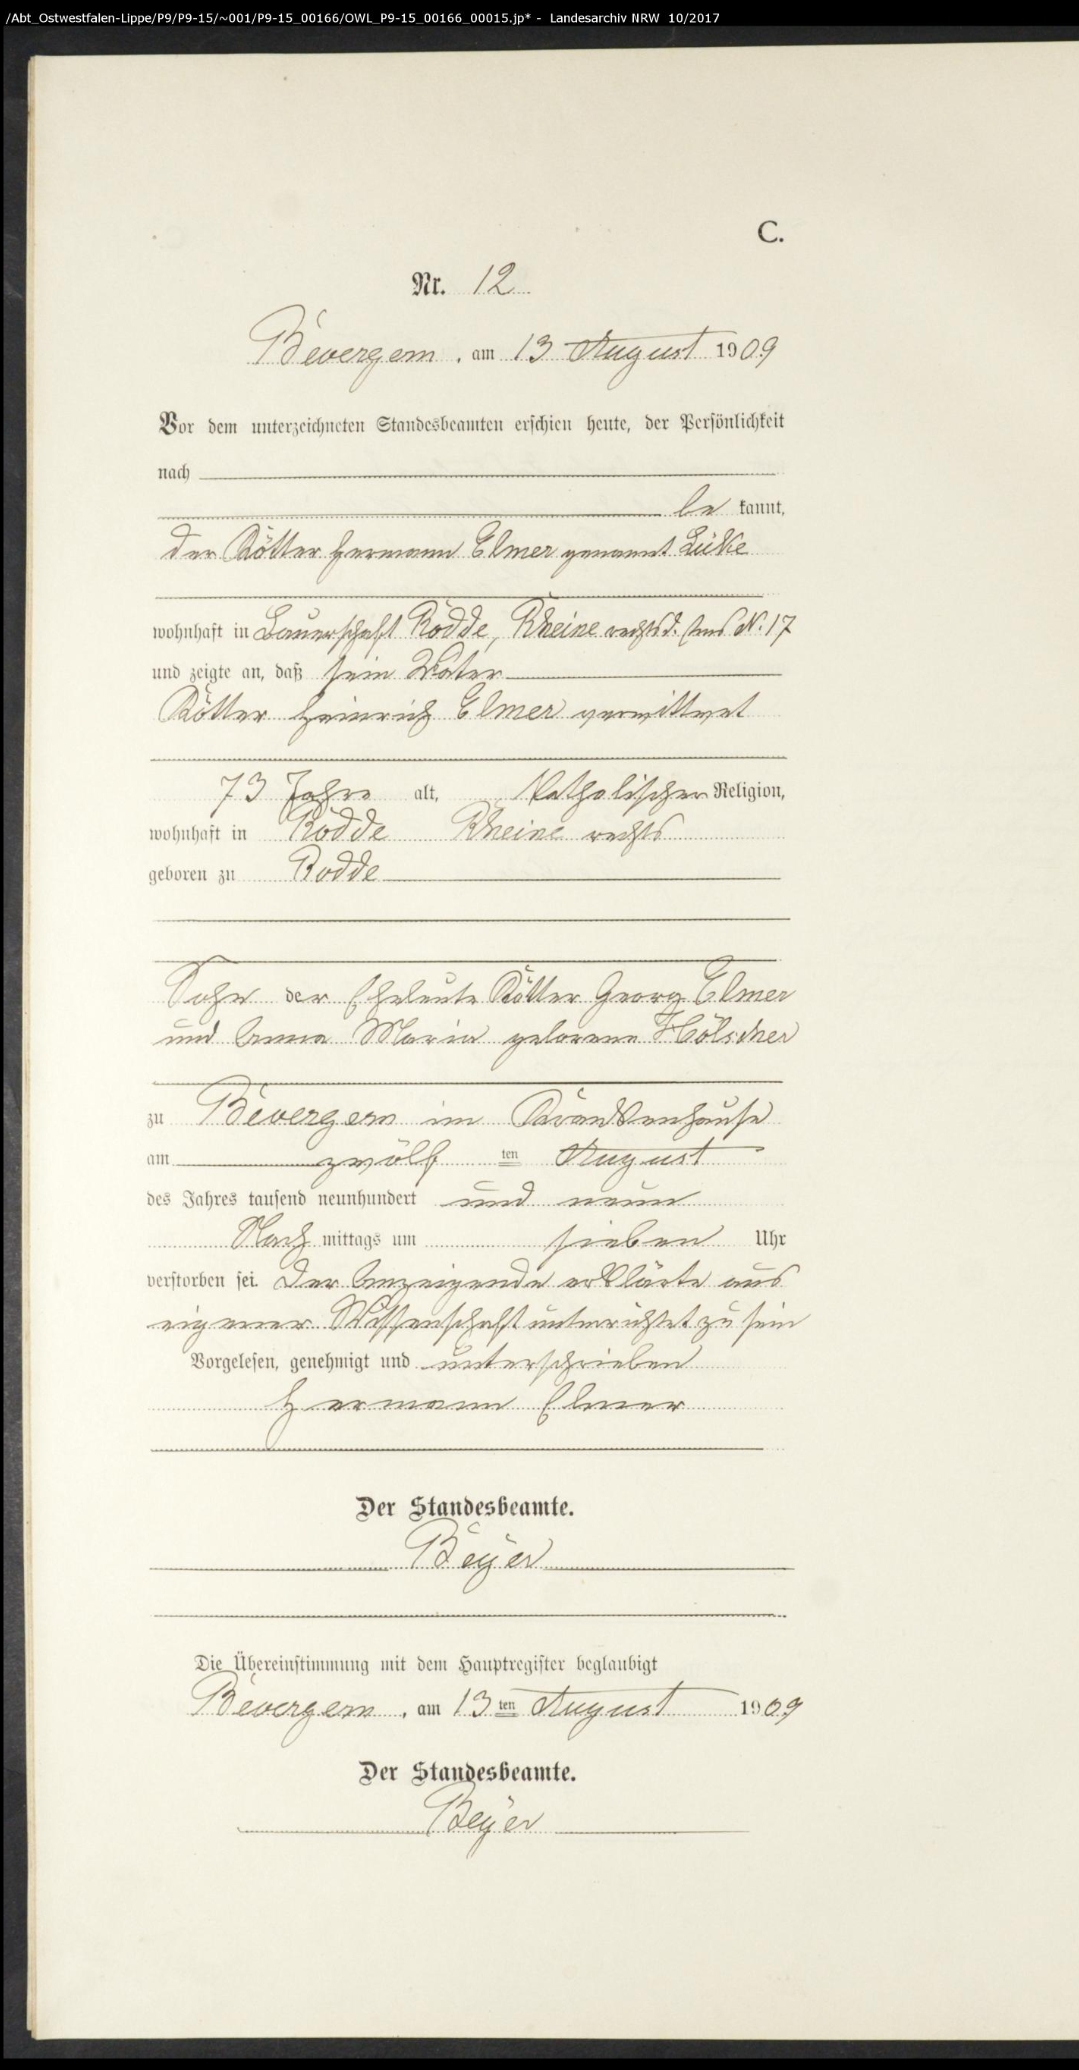 /Abt_Ostwestfalen-Lippe/P9/P9-15/~001/P9-15_00166/OWL_P9-15_00166_00015.jp* - Landesarchiv NRW 10/2017
C.
Nr. 12
Bevergern, am 13 August 1909
Vor dem unterzeichneten Standesbeamten erschien heute, der Persönlichkeit
nach
be kannt,
der Kötter Hermann Elmer genannt Lücke
wohnhaft in Bauerschaft Rodde, Rheine rechts d. Ems N. 17
und zeigte an, daß sein Vater
Kötter Heinrich Elmer verwittwet
73 Jahre alt, katholischer Religion,
wohnhaft in Rodde Rheine rechts
geboren zu Rodde
Sohn der Eheleute Kötter Georg Elmer
und Anna Maria geborene Hölscher
zu Bevergern im Krankenhause
am zwölf ten August
des Jahres tausend neunhundert und neun
Nach mittags um sieben Uhr
verstorben sei. Der Anzeigende erklärte aus
eigener Wissenschaft unterrichtet zu sein
Vorgelesen, genehmigt und unterschrieben
Hermann Elmer
Der Standesbeamte.
Beyer
Die Übereinstimmung mit dem Hauptregister beglaubigt
Bevergern, am 13 ten August 1909
Der Standesbeamte.
Beyer